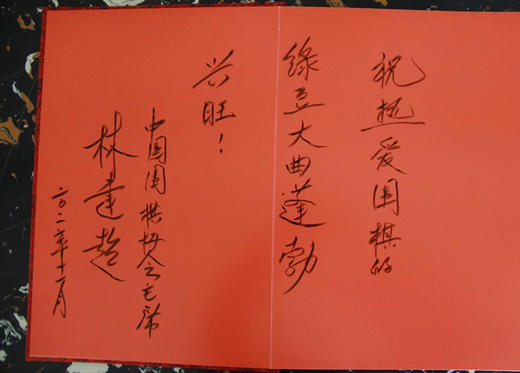 祝热爱围棋的
绿豆大曲蓬勃
兴旺！
中国围棋协会主席
林建超
二〇二〇年十一月